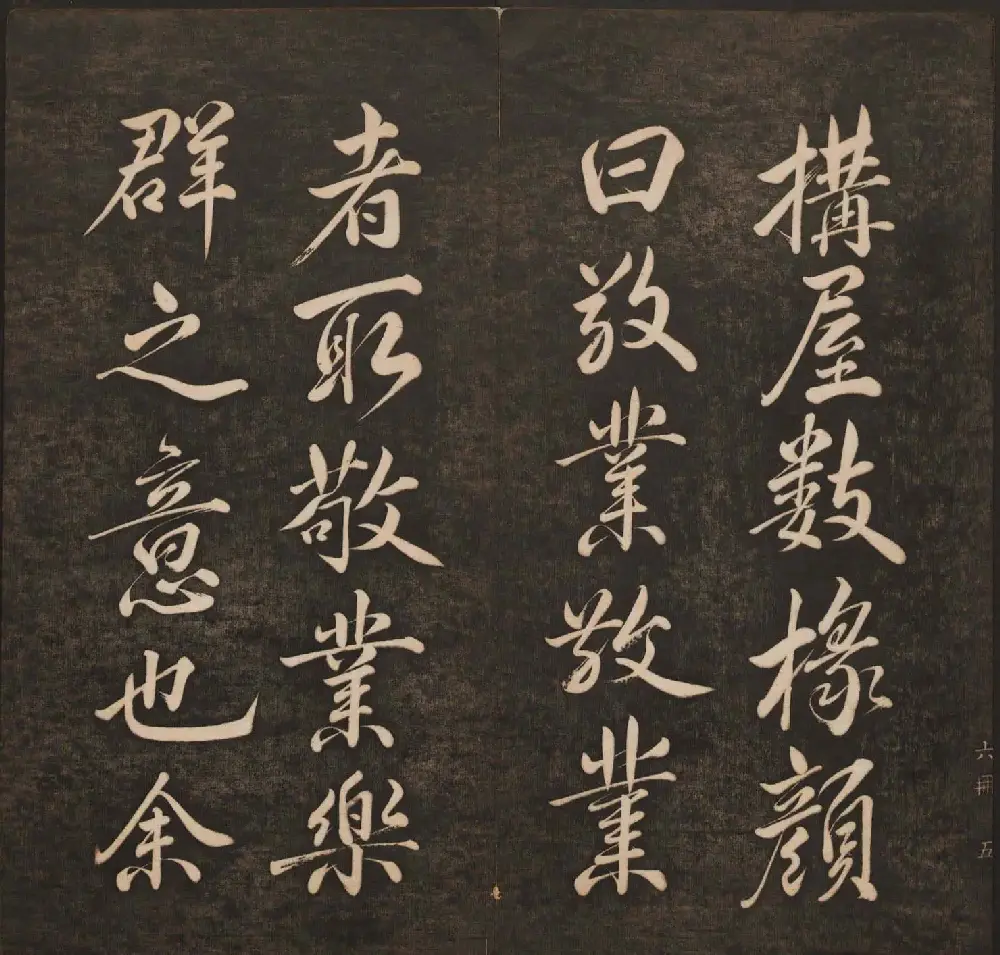 搆屋数椽顔
曰敬業敬業
者取敬業樂
群之意也余
六冊 五